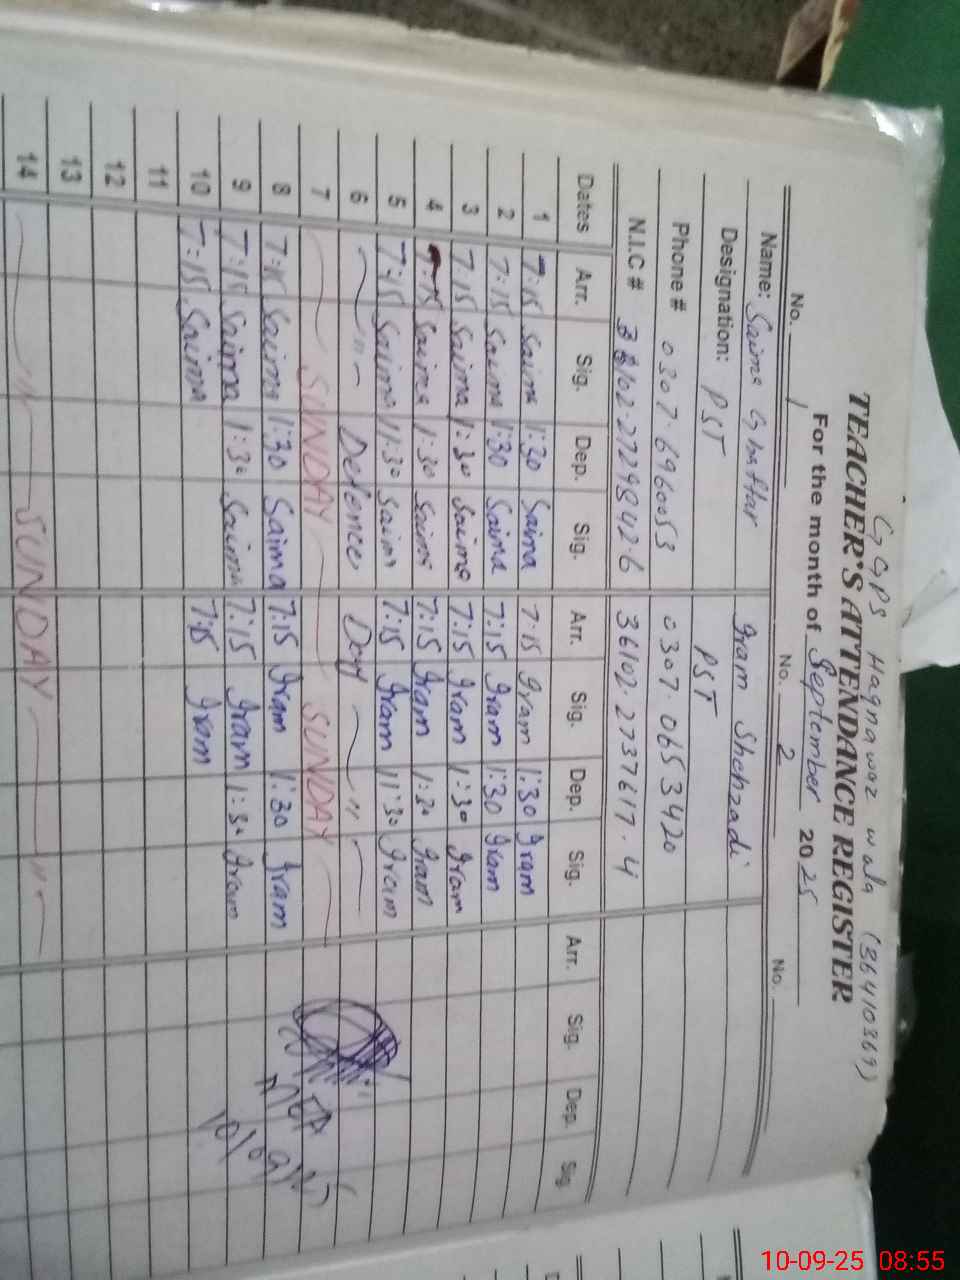 GGPS Haqnawaz wala (36410369)
TEACHER'S ATTENDANCE REGISTER
For the month of September 2025
No. 1 No. 2 No.
Name: Saima Ghaffar Iram Shehzadi
Designation: PST PST
Phone # 0307-6960053 0307-0653420
N.I.C # 36102-2729842-6 36102-2737617-4
Dates Arr. Sig. Dep. Sig. Arr. Sig. Dep. Sig. Arr. Sig. Dep. Sig.
1 7:15 Saima 1:30 Saima 7:15 Iram 1:30 Iram
2 7:15 Saima 1:30 Saima 7:15 Iram 1:30 Iram
3 7:15 Saima 1:30 Saima 7:15 Iram 1:30 Iram
4 7:15 Saima 1:30 Saima 7:15 Iram 1:30 Iram
5 7:15 Saima 11:30 Saima 7:15 Iram 11:30 Iram
6 〃 Defence Day 〃
7 SUNDAY SUNDAY
8 7:15 Saima 1:30 Saima 7:15 Iram 1:30 Iram
9 7:15 Saima 1:30 Saima 7:15 Iram 1:30 Iram
10 7:15 Saima 7:15 Iram
11
12
13
14 〃 SUNDAY 〃
10-09-25 08:55